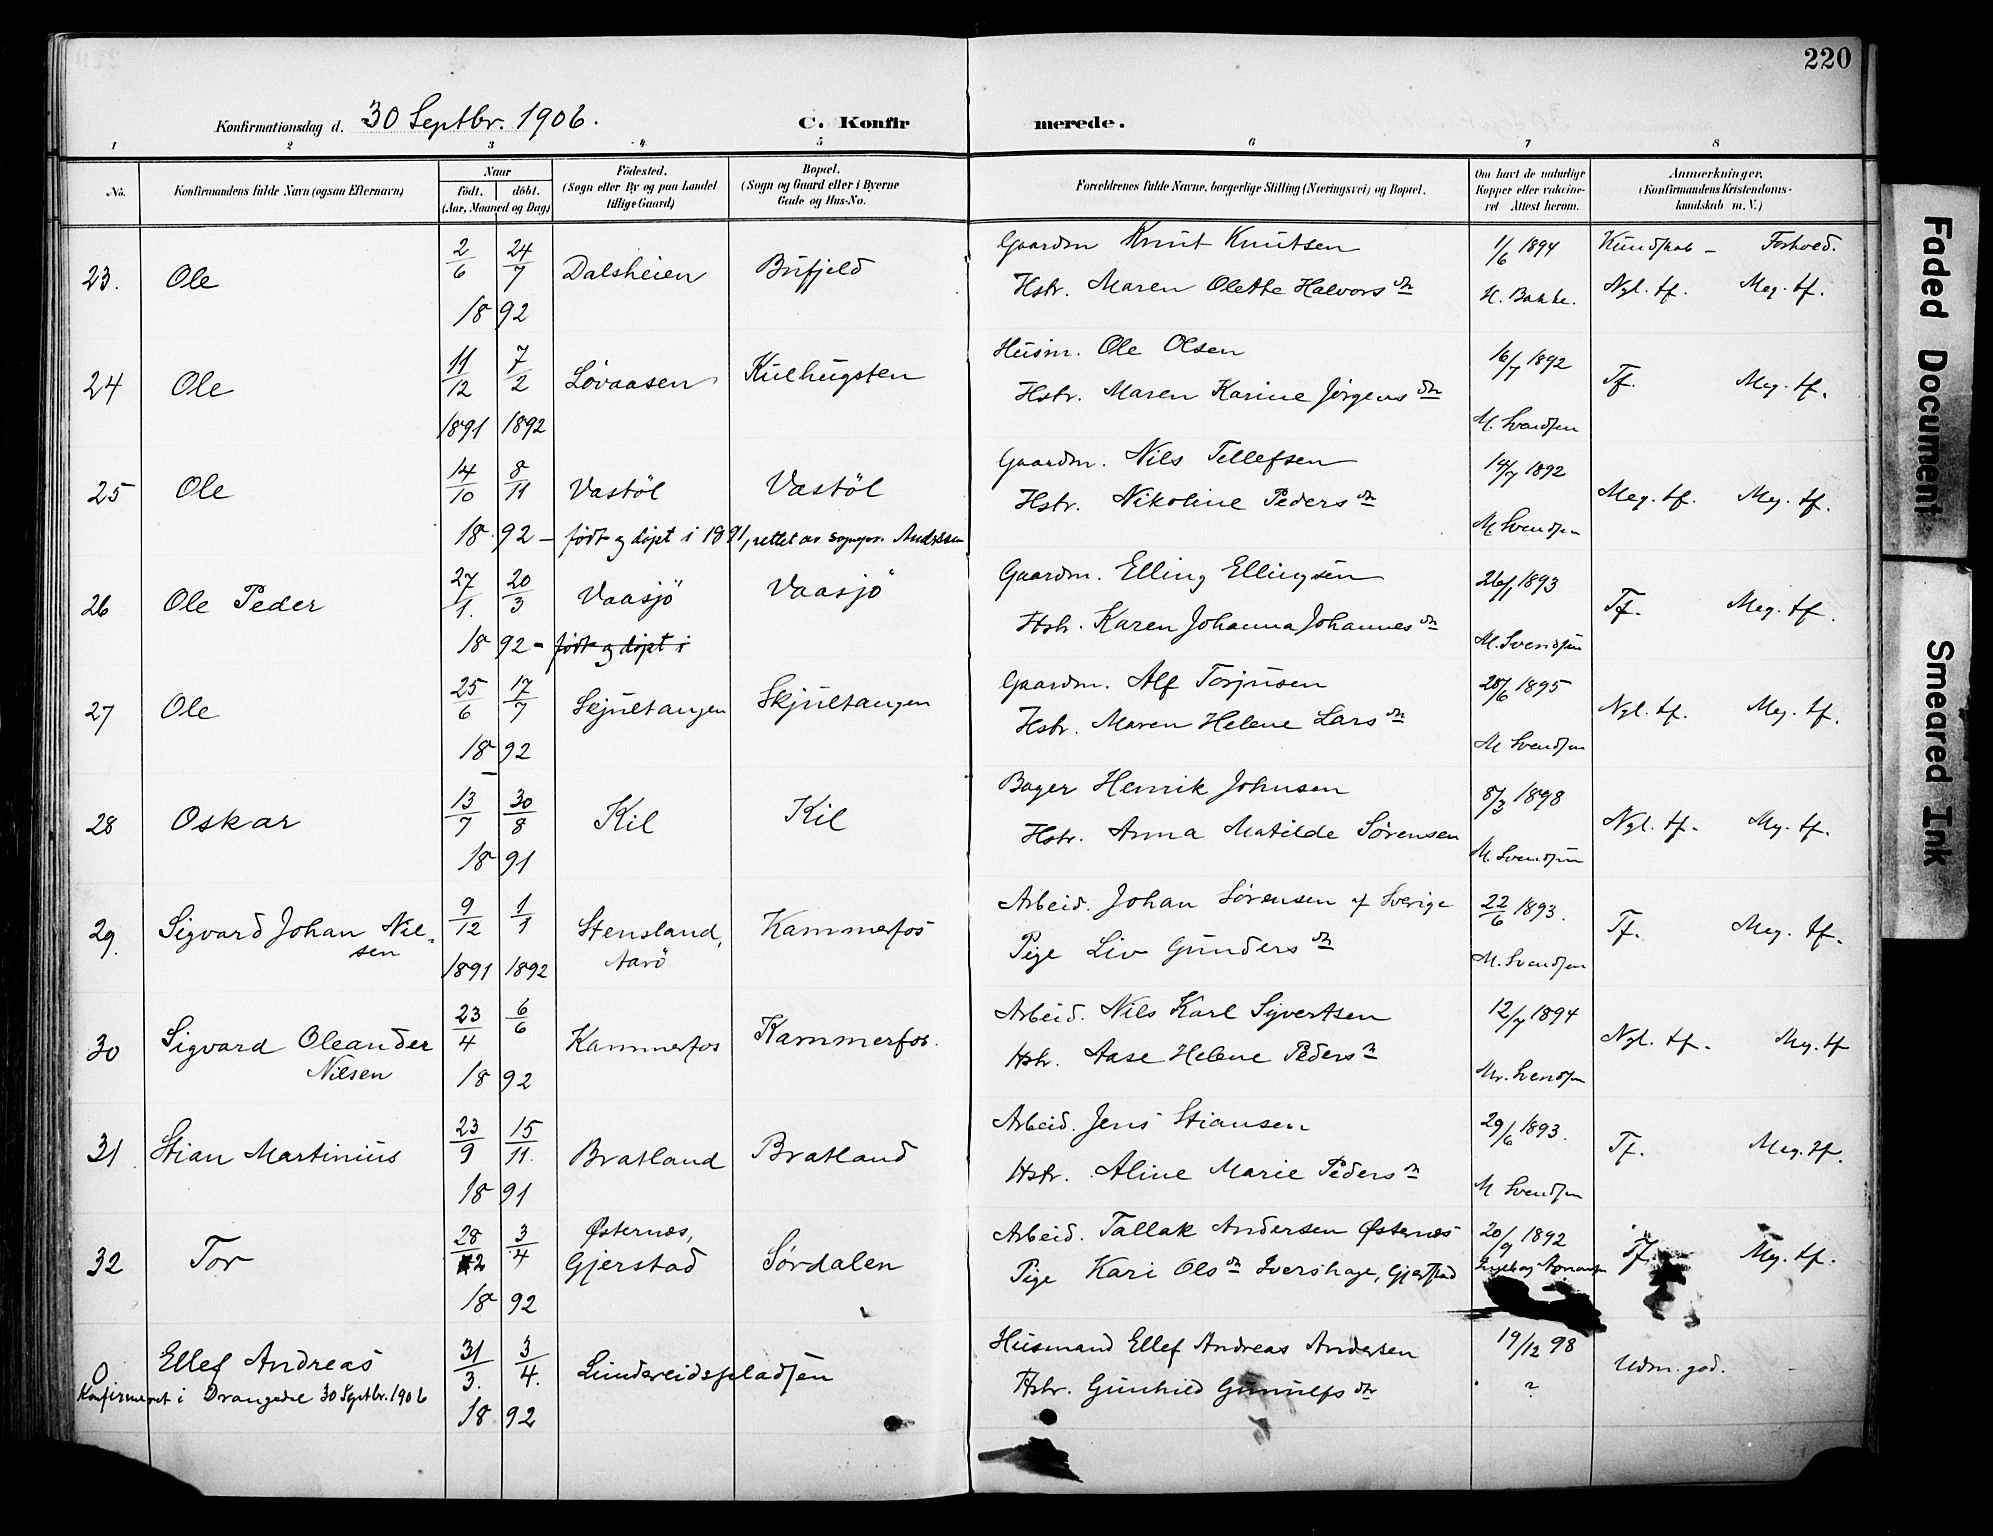 220
Konfirmationsdag d. 30 Septbr. 1906. C. Konfirmerede.
1 2 3 4 5 6 7 8
No. Konfirmandens fulde Navn (ogsaa Efternavn) Naar født. døbt. (Aar, Maaned og Dag) Fødested. (Sogn eller By og paa Landet tillige Gaard) Bopæl. (Sogn og Gaard eller i Byerne Gade og Hus-No. Forældrenes fulde Navne, borgerlige Stilling (Næringsvei) og Bopæl. Om havt de naturlige Kopper eller vakcineret Attest herom. Anmærkninger. (Konfirmandens Kristendomskundskab m. V.)
Gaardm Knut Knutsen 1/6 1894 Kundskab – Forhold.
23. Ole 2/6 24/7 Dalsheien Bufjeld Hstr. Maren Olette Halvors dr H. Bakke. Ngl. tf. Meg. tf.
18 92
Husm. Ole Olsen 16/7 1892
24 Ole 11/12 7/2 Løvaasen Kulhugsten Hstr. Maren Karine Jørgens dr Tf. Meg. tf.
1891 1892 M. Svendsen
Gaardm. Nils Tellefsen 14/7 1892
25 Ole 14/10 8/11 Vastöl Vastöl Hstr. Nikoline Peders dr Meg. tf. Meg. tf.
18 92 – født og døpt i 1891, rettet av sognepr. Andersen M Svendsen
Gaardm. Elling Ellingsen 26/1 1893
26 Ole Peder 27/1. 20/3 Vaasjö Vaasjö Hstr. Karen Johanna Johannes dr Tf. Meg. tf.
18 92 – født og døpt i M. Svendsen
Gaardm. Alf Torjusen 28/6 1895
27 Ole 25/6 17/7 Skjultangen Skjultangen Hstr. Maren Helene Lars dr Ngl. tf. Meg. tf.
18 92 M Svendsen
Bager Henrik Johnsen 8/3 1898
28 Oskar 13/7 30/8 Kil Kil Hstr. Anna Matilde Sørensen Ngl. tf. Meg. tf.
18 91 M. Svendsen
Arbeid. Johan Sørensen af Sverige 22/6 1893.
29. Sigvard Johan Nilsen 9/12 1/1 Stensland, Aarö Kammerfos Pige Liv Gunders dr Tf. Meg. tf.
1891 1892 M. Svendsen
Arbeid. Nils Karl Sivertsen 12/7 1894
30 Sigvard Oleander Nilsen 23/4 6/6 Kammerfos Kammerfos. Hstr. Aase Helene Peders dr Ngl. tf. Meg. tf
18 92 M. Svendsen
Arbeid. Jens Stiansen 29/6 1893.
31 Stian Martinius 23/9 15/11. Bratland Bratland Hstr. Aline Marie Peders dr Tf. Meg. tf.
18 91 M Svendsen
Arbeid. Tallak Andersen Østernæs 20/9 1892
32 Tor 28/2 3/4 Østernæs, Gjerstad Sørdalen Pige Kari Ols dr Ivershage, Gjerstad Tf. Meg. tf.
18 92
Husmand Ellef Andreas Andersen 19/12 98
0 Ellef Andreas 31/3. 3/4. Lundereidspladsen Hstr. Gunhild Gunulfs dr ? Udm. god.
Konfirmeret i Drangedal 30 Septbr. 1906 18 92
Faded Document
Smeared Ink